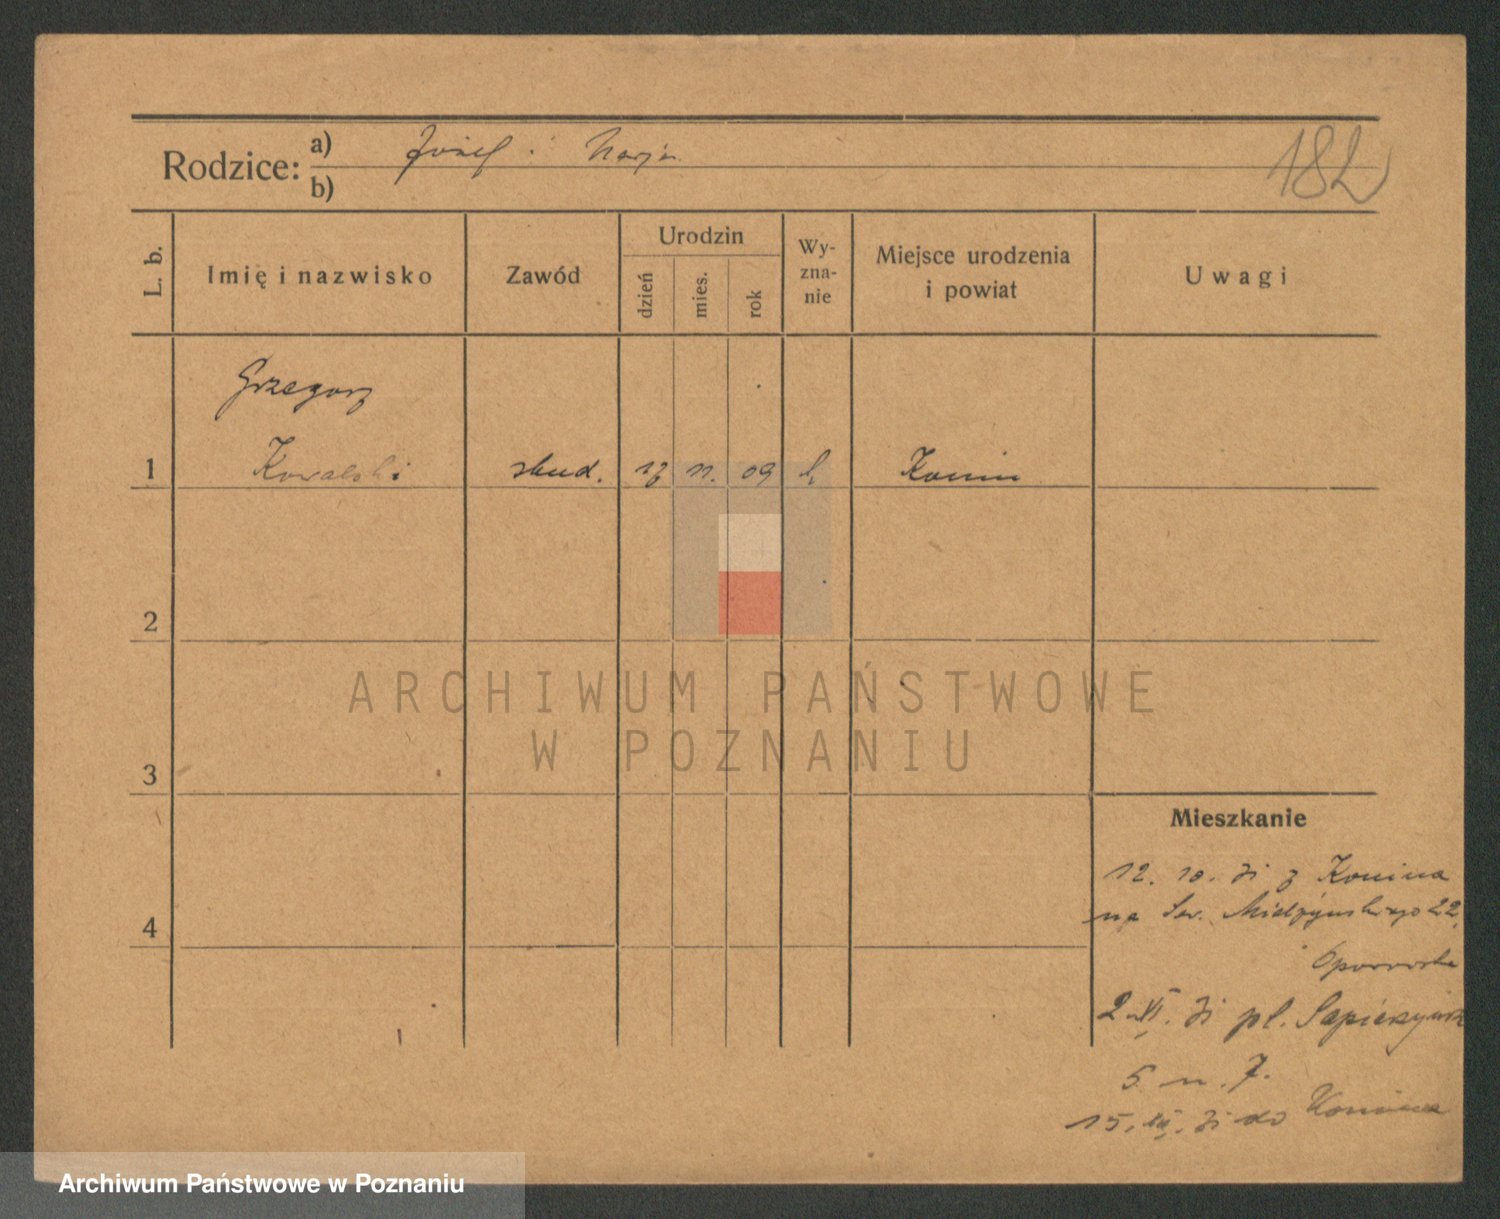 Rodzice: a) Józef i Marja
b)
182
L. b.
Imię i nazwisko
Zawód
Urodzin
dzień
mies.
rok
Wy-
zna-
nie
Miejsce urodzenia
i powiat
Uwagi
Grzegorz
1 Kowalski stud. 11. 09 Konin
2
3
4
ARCHIWUM PAŃSTWOWE
W POZNANIU
Mieszkanie
12. 10. 31 z Konina
na Sew. Mielżyńskiego 22,
2 XI. 31 pl. Sapieżyńsk
5 m. 7.
15, 31 do Konina
Archiwum Państwowe w Poznaniu